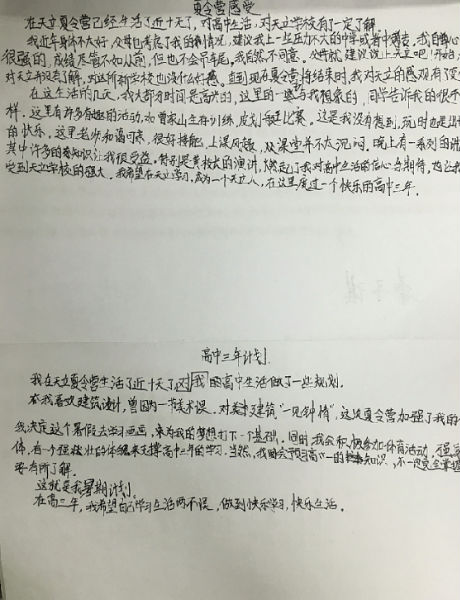 夏令营感受
在天立夏令营已经生活了近十天了,对高中生活,对天立学校有了一定了解
我近年身体不太好,父母也考虑了我的身体情况,建议我上一些压力不大的中学或者中职,我自尊心
很强的,成绩尽管不如从前,但也不会吊车尾,我自然不同意。父母就建议我上天立吧!开始
对天立并没有了解,对这所新学校也没什么好感。直到现在夏令营将结束时,我对天立的感观有了
在这生活的几天,我大部分时间是高兴的,这里的一些与我想象的,同学告诉我的很不
样。这里有许多有趣的活动,如曾家山生存训练,皮划艇比赛。这是我没有想到,
的快乐。这里老师和蔼可亲,很好接触,上课风趣,从课堂并不太沉闷。晚上有一系列的讲
其中许多的新知识让我很受益。特别是黄校长的演讲,燃起了我对高中生活的信心与期待,也让我
受到天立学校的强大。我希望在天立学习,成为一个天立人,在这里度过一个快乐的高中三年。
高中三年计划
我在天立夏令营生活了近十天了,对我的高中生活做了一些规划。
我喜欢建筑设计,曾因为一节美术课,对建筑"一见钟情",这次夏令营加强了我的
我决定这个暑假去学习画画,来为我的梦想打下一个基础。同时我会积极参加体育活动,强
体,有一个强壮的体魄来支撑高中三年的学习。当然,我也会预习高一的知识,不一定完全掌握
要有所了解。
这就是我暑期计划。
在高三年,我希望自己学习生活两不误,做到快乐学习,快乐生活。